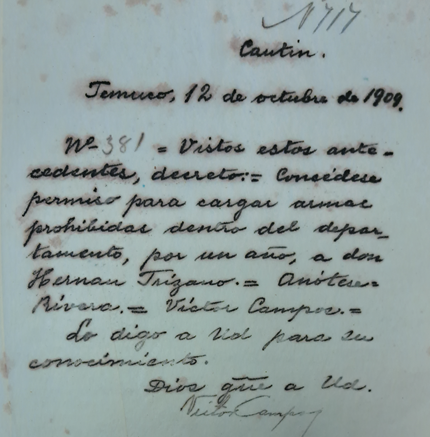 Nº 717
Cautin.
Temuco, 12 de octubre de 1909.
Nº 381 = Vistos estos ante-
cedentes, decreto:= Concédese
permiso para cargar armas
prohibidas dentro del depar-
tamento, por un año, a don
Hernan Trizano.= Anótese=
Rivera.= Víctor Campos.=
Lo digo a Ud para su
conocimiento.
Dios gue a Ud.
Victor Campos